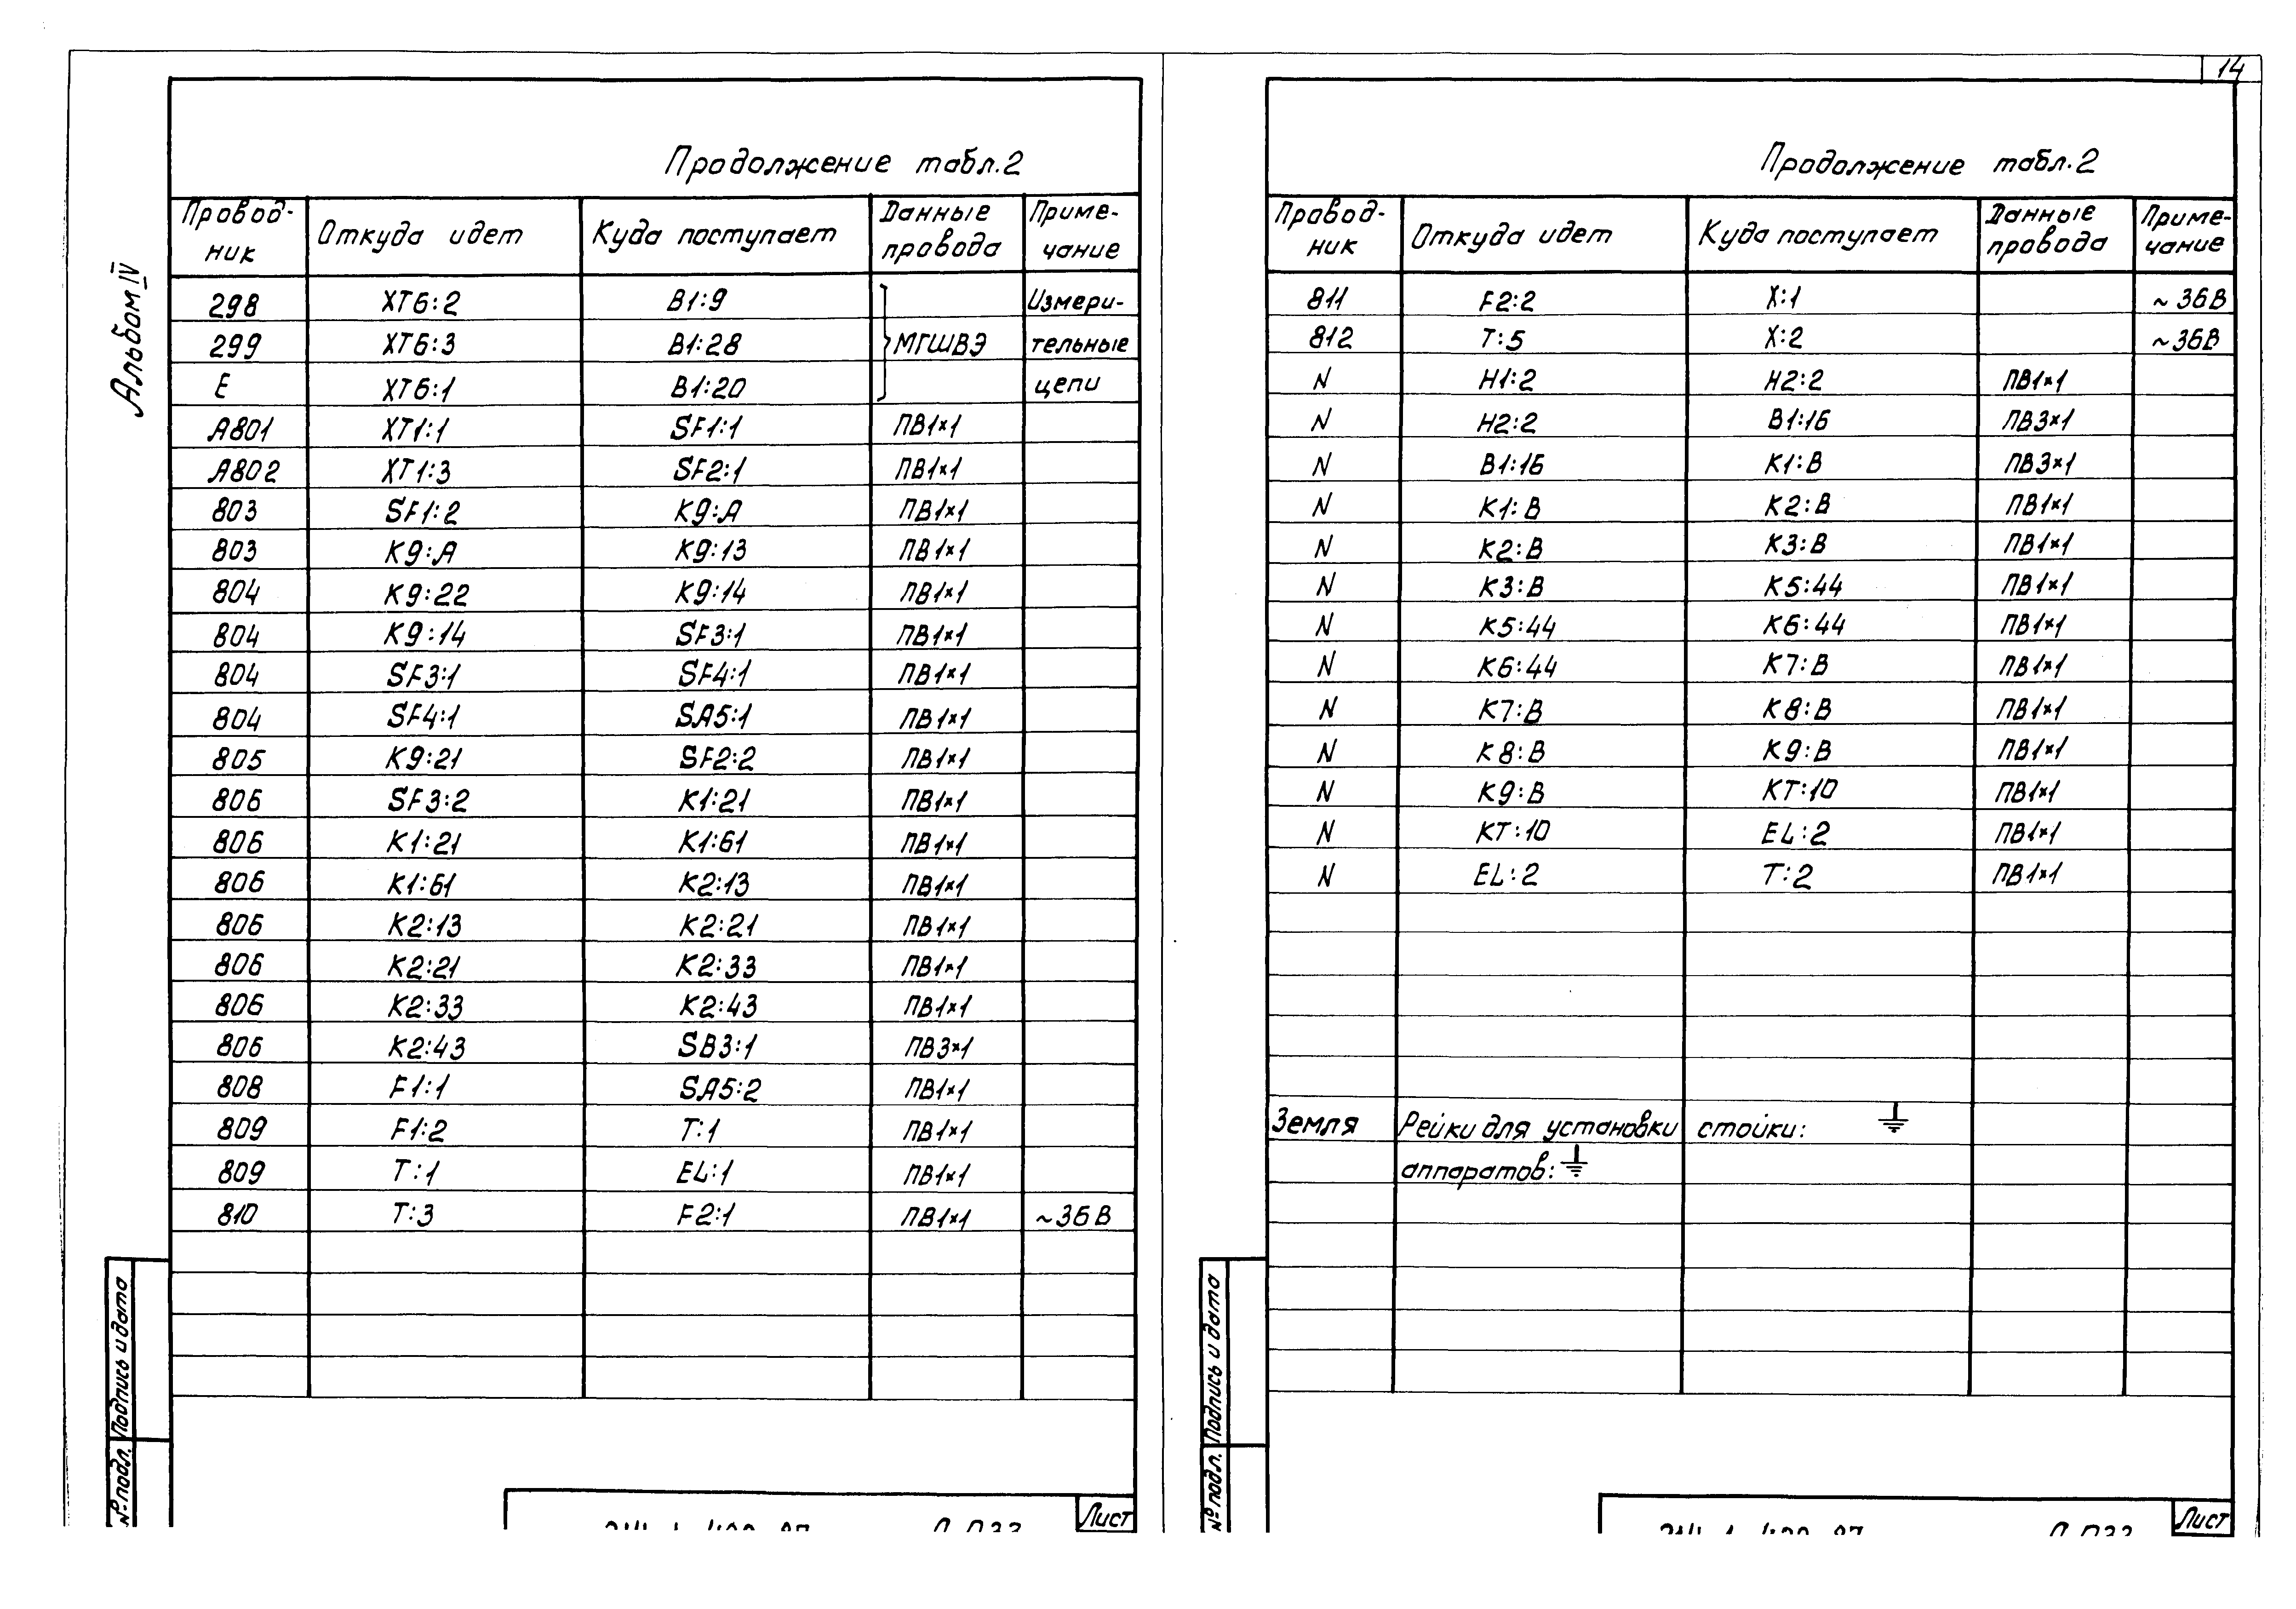 14
Альбом IV
Продолжение табл.2
Провод-ник Откуда идет Куда поступает Данные провода Приме-чание
298 XT6:2 B1:9 Измери-
299 XT6:3 B1:28 МГШВЭ тельные
E XT6:1 B1:20 цепи
A801 XT1:1 SF1:1 ПВ1×1
A802 XT1:3 SF2:1 ПВ1×1
803 SF1:2 K9:A ПВ1×1
803 K9:A K9:13 ПВ1×1
804 K9:22 K9:14 ПВ1×1
804 K9:14 SF3:1 ПВ1×1
804 SF3:1 SF4:1 ПВ1×1
804 SF4:1 SA5:1 ПВ1×1
805 K9:21 SF2:2 ПВ1×1
806 SF3:2 K1:21 ПВ1×1
806 K1:21 K1:61 ПВ1×1
806 K1:61 K2:13 ПВ1×1
806 K2:13 K2:21 ПВ1×1
806 K2:21 K2:33 ПВ1×1
806 K2:33 K2:43 ПВ1×1
806 K2:43 SB3:1 ПВ3×1
808 F1:1 SA5:2 ПВ1×1
809 F1:2 T:1 ПВ1×1
809 T:1 EL:1 ПВ1×1
810 T:3 F2:1 ПВ1×1 ~36В
Подпись и дата
№ подл.
Лист
Продолжение табл.2
Провод-ник Откуда идет Куда поступает Данные провода Приме-чание
811 F2:2 X:1 ~36В
812 T:5 X:2 ~36В
N H1:2 H2:2 ПВ1×1
N H2:2 B1:16 ПВ3×1
N B1:16 K1:B ПВ3×1
N K1:B K2:B ПВ1×1
N K2:B K3:B ПВ1×1
N K3:B K5:44 ПВ1×1
N K5:44 K6:44 ПВ1×1
N K6:44 K7:B ПВ1×1
N K7:B K8:B ПВ1×1
N K8:B K9:B ПВ1×1
N K9:B KT:10 ПВ1×1
N KT:10 EL:2 ПВ1×1
N EL:2 T:2 ПВ1×1
Земля Рейки для установки стойки:
аппаратов:
Подпись и дата
№ подл.
Лист